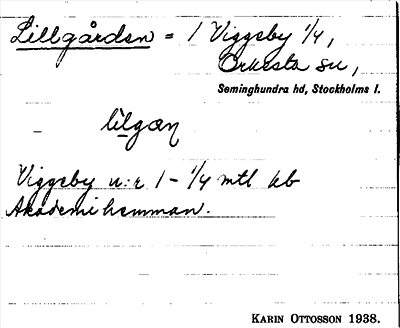 Lillgården = 1 Viggeby 1/4,
Orkesta sn,
Seminghundra hd, Stockholms l.
lilgan
Viggeby n:r 1 - 1/4 mtl kb
Akademihemman.
KARIN OTTOSSON 1938.